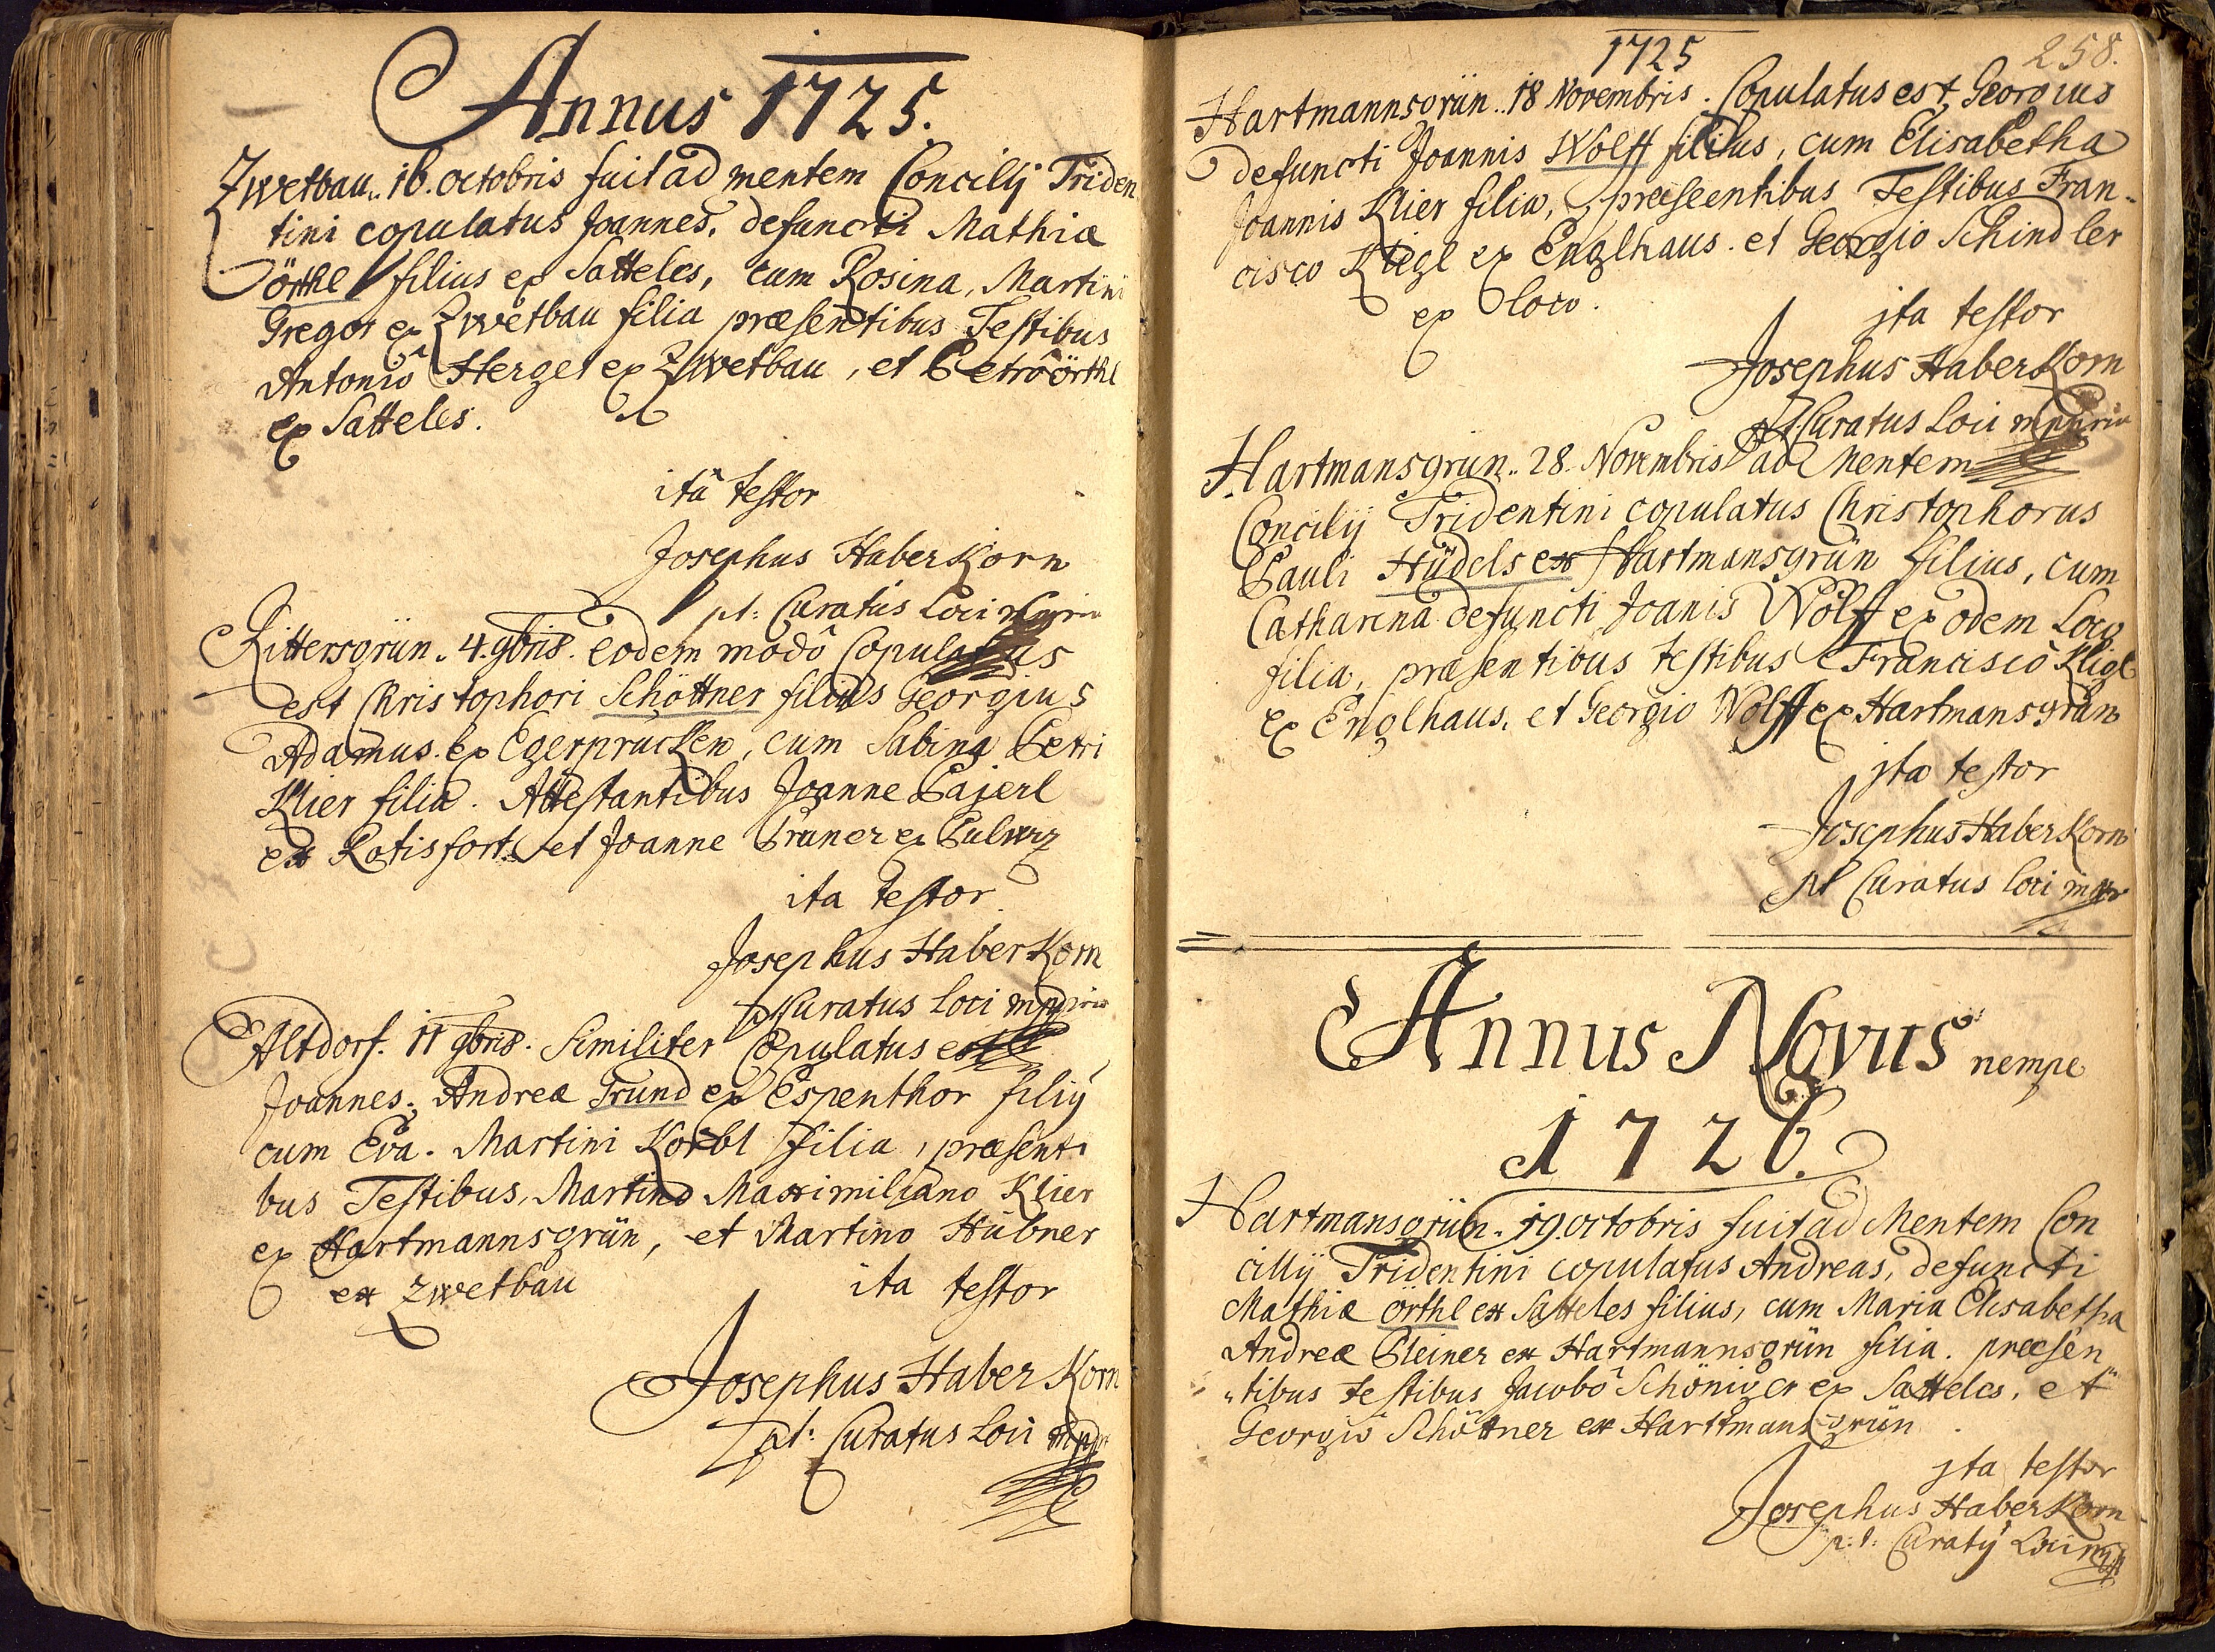 Annus 1725.
Zwetbau. 16. octobris fuit ad mentem Concilij Triden
tini copulatus Joannes, defuncti Mathiæ
örthl filius ex Satteles, cum Rosina, Martini
Gregor ex Zwetbau filia præsentibus Testibus
Antoniô Herget ex Zwetbau, et Petrô örthl
ex Satteles.
itâ testor
Josephus HaberKorn
pt: Curatus Loci mppria
Rittersgrün. 4. 9bris. eodem modô Copulatus
est Christophori Schöttner filius Georgius
Adamus ex Egerprucken, cum Sabina Petri
Klier filia. Attestantibus Joanne Pajerl
ex Rotisfort et Joanne Praner ex Pulwiz
ita testor
Josephus HaberKorn
pt Curatus Loci mppria
Altdorf. 11 9bris. Similiter Copulatus est
Joannes, Andreæ Grund ex Espenthor filiÿ
cum Eva. Martini Korbl filia, præsenti
bus Testibus, Martino Maximiliano Klier
ex Hartmannsgrün, et Martino Hübner
ex Zwetbau ita testor
Josephus HaberKorn
pt: Curatus Loci mppr
1725 258.
Hartmannsgrün. 18 Novembris. Copulatus est Georgius
defuncti Joannis Wolff filius, cum Elisabetha
Joannis Klier filia, præseentibus Testibus Fran-
cisco Kligl ex Englhaus. et Georgio Schindler
ex loco.
jta testor
Josephus HaberKorn
pt Curatus Loci mppria
Hartmansgrün. 28. Novembris ad Mentem
Concilij Tridentini copulatus Christophorus
Pauli Hüdels ex Hartmansgrün filius, cum
Catharina defuncti Joanis Wolff ex odem Loco
filia, præsentibus testibus Franciscô Kligl
ex Englhaus, et Georgio Wolff ex Hartmansgrün
jta testor
Josephus HaberKorn
pt Curatus loci mppr
Annus Novus nempe
1726.
Hartmansgrün. 19. octobris fuit ad Mentem Con
cilij Tridentini copulatus Andreas, defuncti
Mathiæ örthl ex Satteles filius, cum Maria Elisabetha
Andreæ Pleiner ex Hartmannsgrün filia. præsen
"tibus testibus Jacobô Schöniger ex Satteles, et"
Georgiô Schöttner ex Harttmansgrün
jta testor
Josephus HaberKorn
p:t: Curatÿ Loci mpp